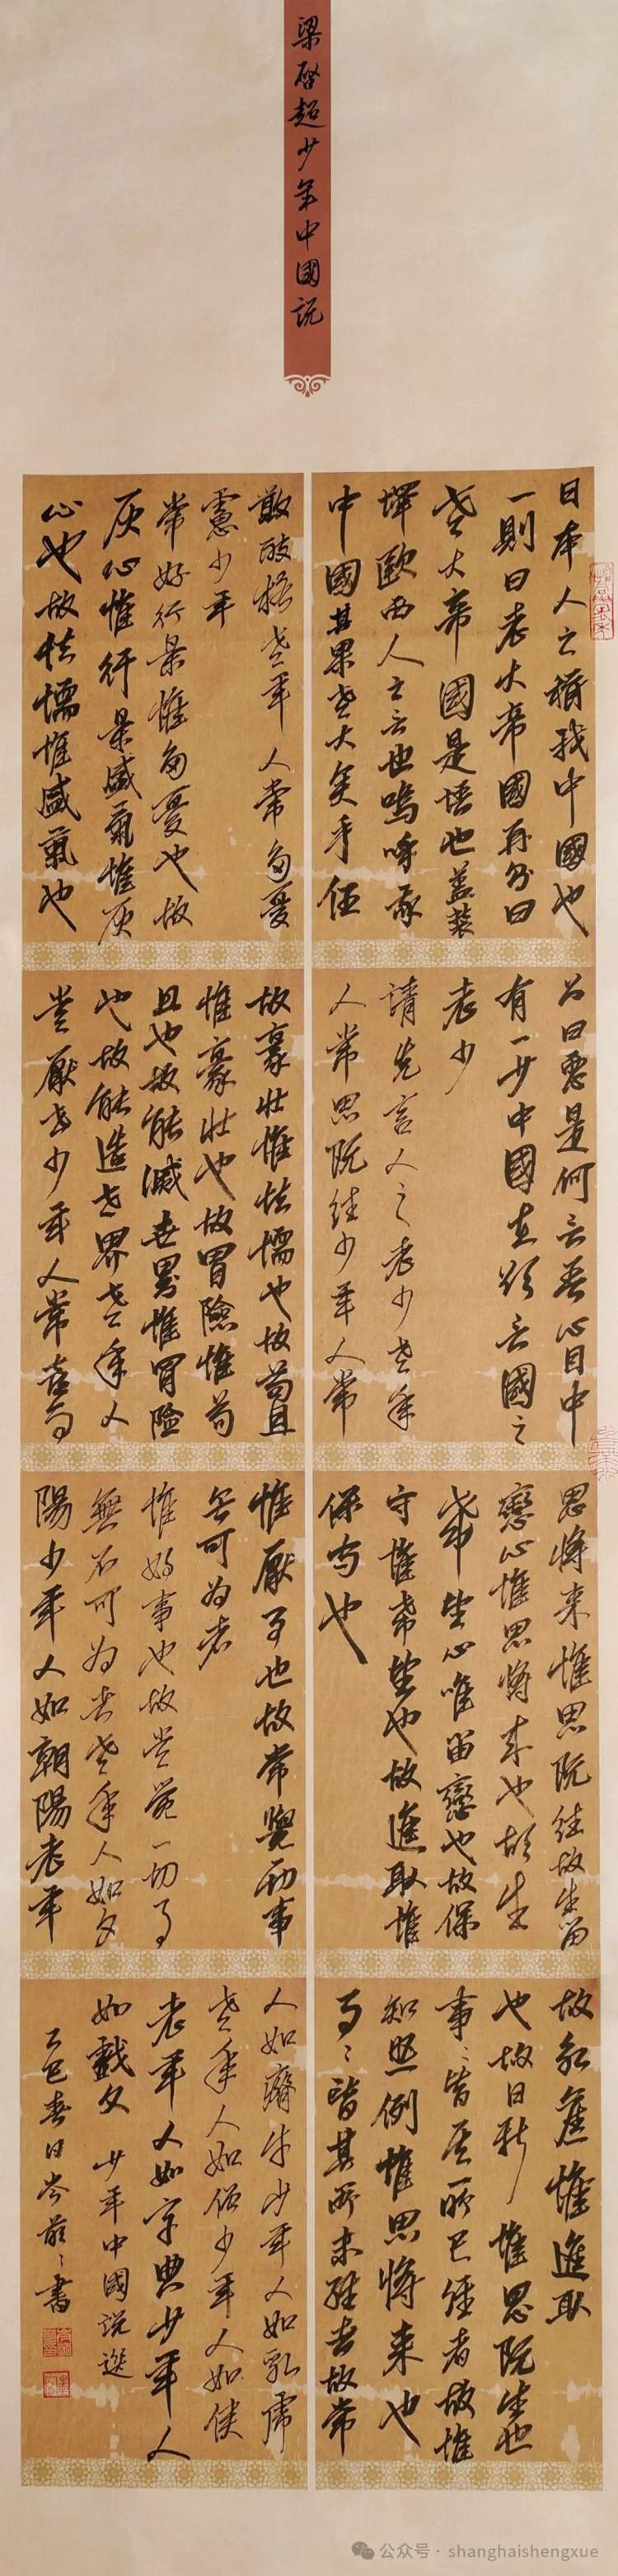 梁啓超少年中國説
日本人之稱我中國也
一則曰老大帝國再則曰
老大帝國是語也蓋襲
譯歐西人之言也嗚呼我
中國其果老大矣乎任
公曰惡是何言吾心目中
有一少中國在欲言國之
老少
請先言人之老少老年
人常思既往少年人常
思將来惟思既往故生留
戀心惟思將来也故生
希望心唯留戀也故保
守惟希望也故進取惟
保守也
故永舊惟進取
也故日新惟思既往也
事〻皆其所已經者故惟
知照例惟思將来也
事〻皆其所未經者故常
敢破格老年人常多憂
慮少年
常好行樂惟多憂也故
灰心惟行樂盛氣惟灰
心也故怯懦惟盛氣也
故豪壯惟怯懦也故苟且
惟豪壯也故冒險惟苟
且也故能滅世界惟冒險
也故能造世界老年人
常厭事少年人常喜事
惟厭事也故常覺一切事
無可為者
惟好事也故常覺一切事
無不可為者老年人如夕
陽少年人如朝陽老年
人如瘠牛少年人如乳虎
老年人如僧少年人如俠
老年人如字典少年人
如戲文 少年中國説選
乙巳春日岑〻書
公众号·shanghaishengxue